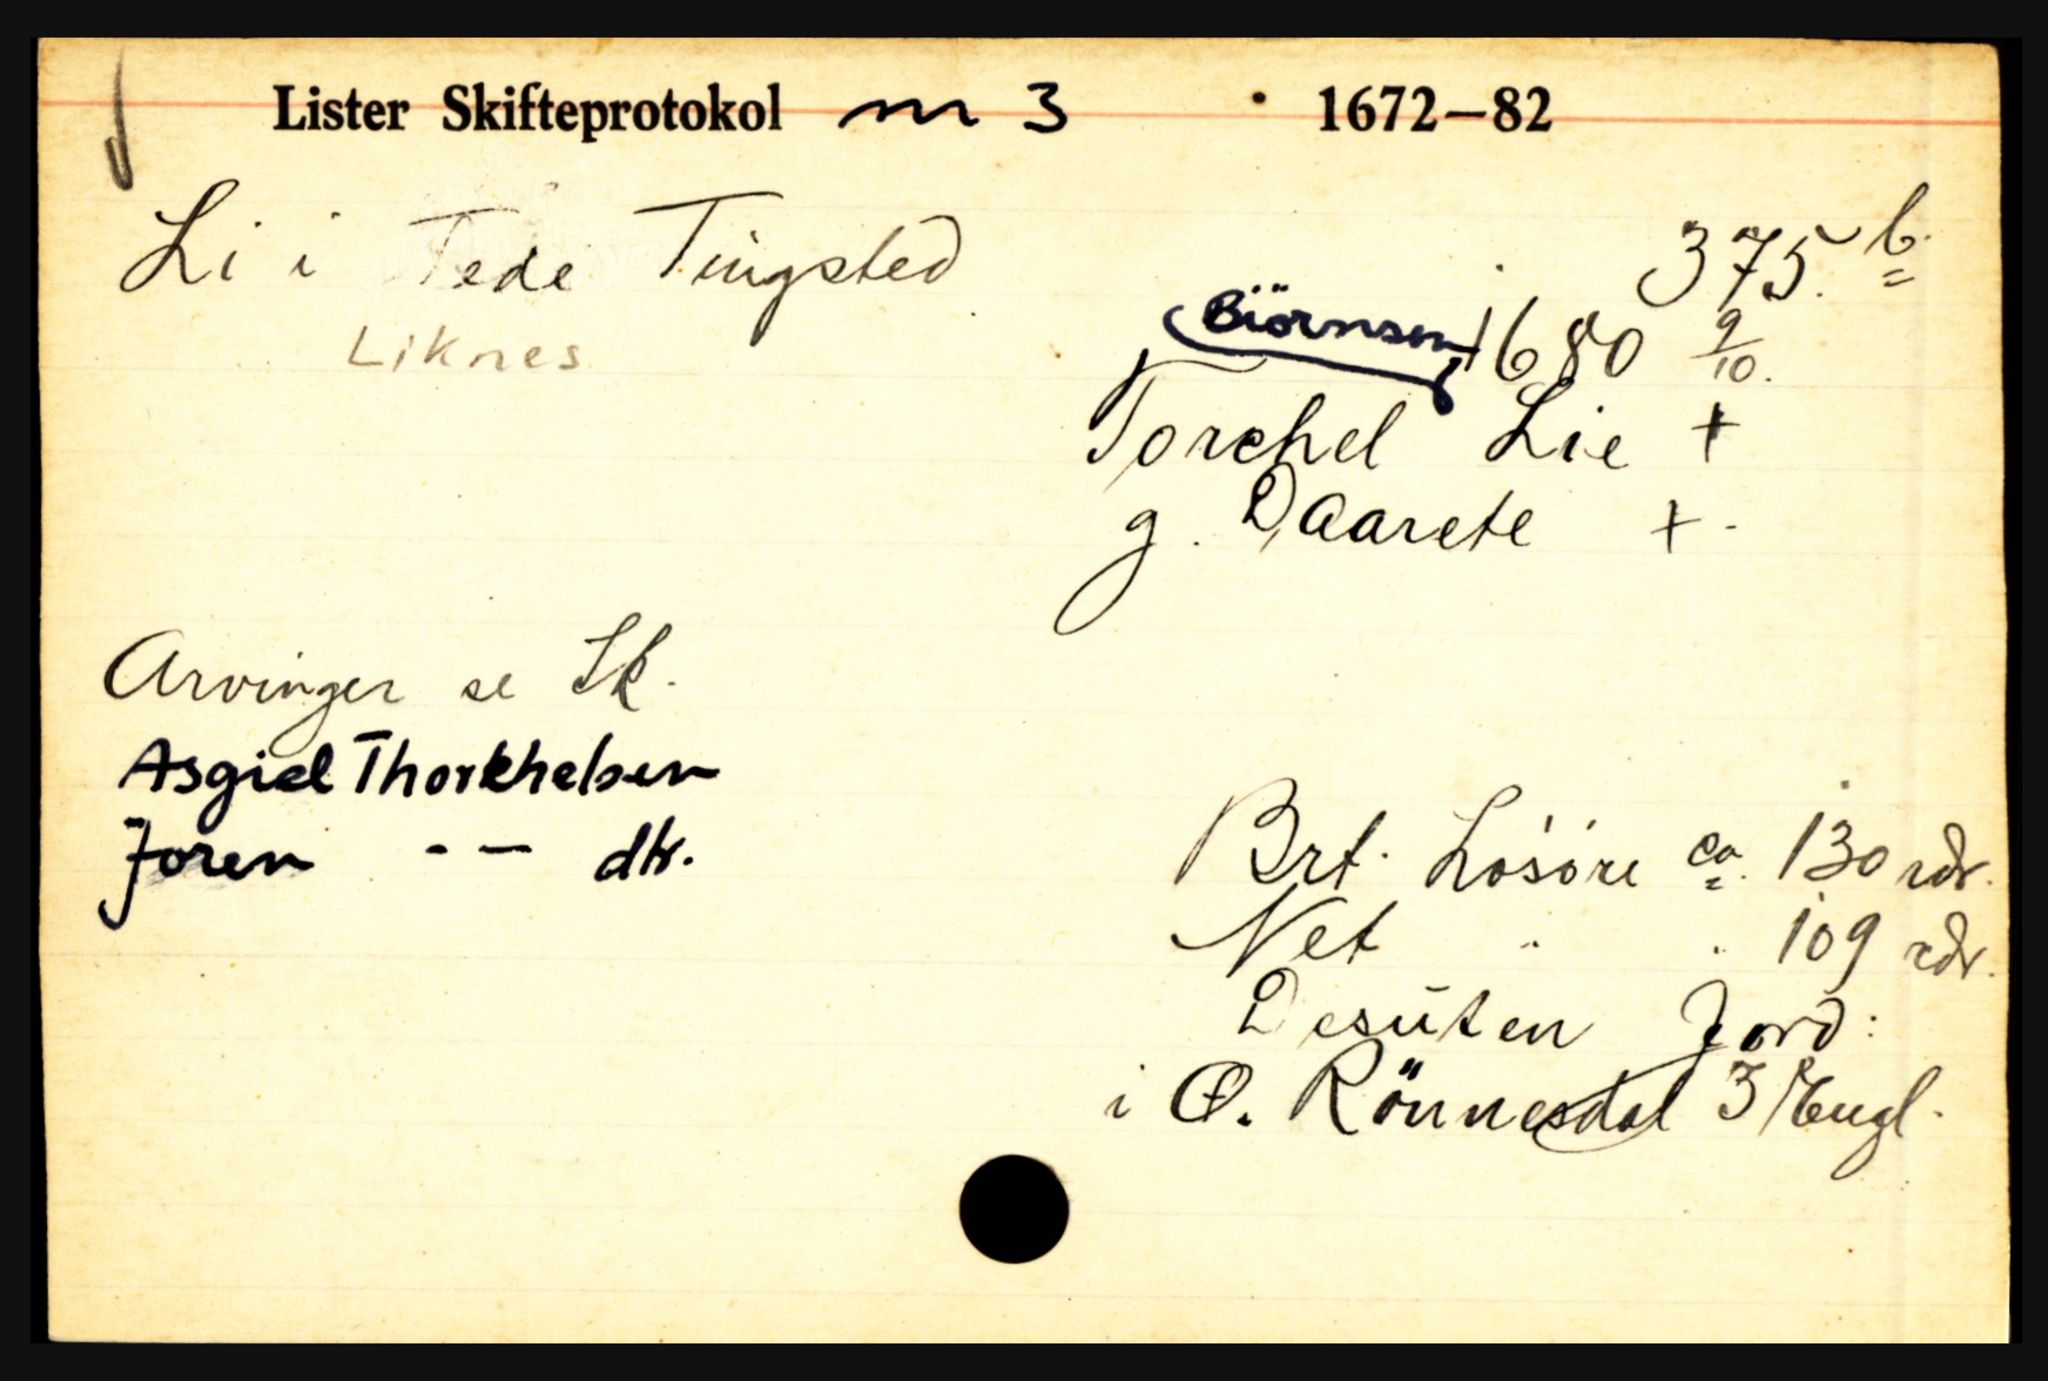 Lister Skifteprotokol nr 3 1672-82
Li i Tede Tingsted
375. b.
Liknes
Biörnsen 1680 9/10.
Torchel Lie +
g. Daarete +.
Arvinger se Sk.
Asgiel Thorkhelsen
Joren - - dtr.
Brt. Lösöre ca. 130 rdr.
Net " " 109 rdr.
Desuten Jord:
i Ø. Rönnesdal 3 Eugl.